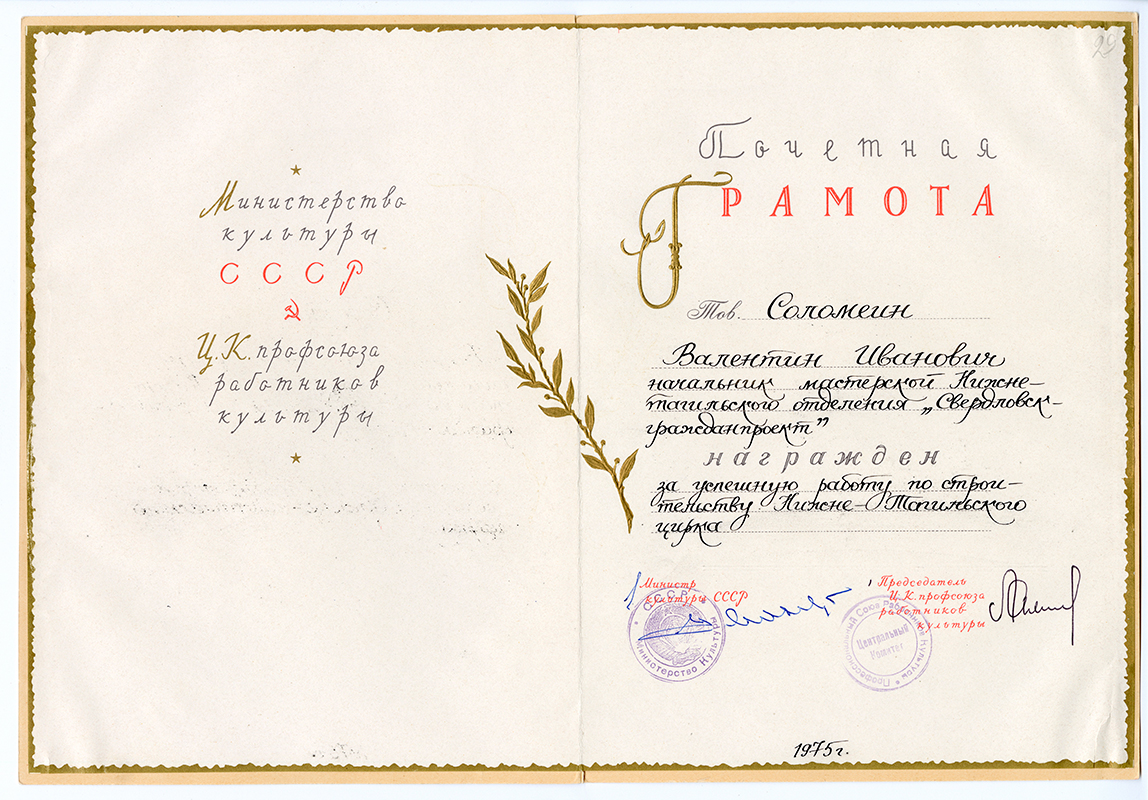 Министерство
культуры
СССР
Ц.К. профсоюза
работников
культуры
29
Почетная
ГРАМОТА
Тов. Соломеин
Валентин Иванович
начальник мастерской Нижне-
тагильского отделения „Свердловск-
гражданпроект”
награжден
за успешную работу по строи-
тельству Нижне-Тагильского
цирка
Министр
культуры СССР
СССР
Министерство Культуры
Председатель
Ц.К. профсоюза
работников
культуры
Профессиональный Союз Работников Культуры
Центральный
Комитет
1975г.